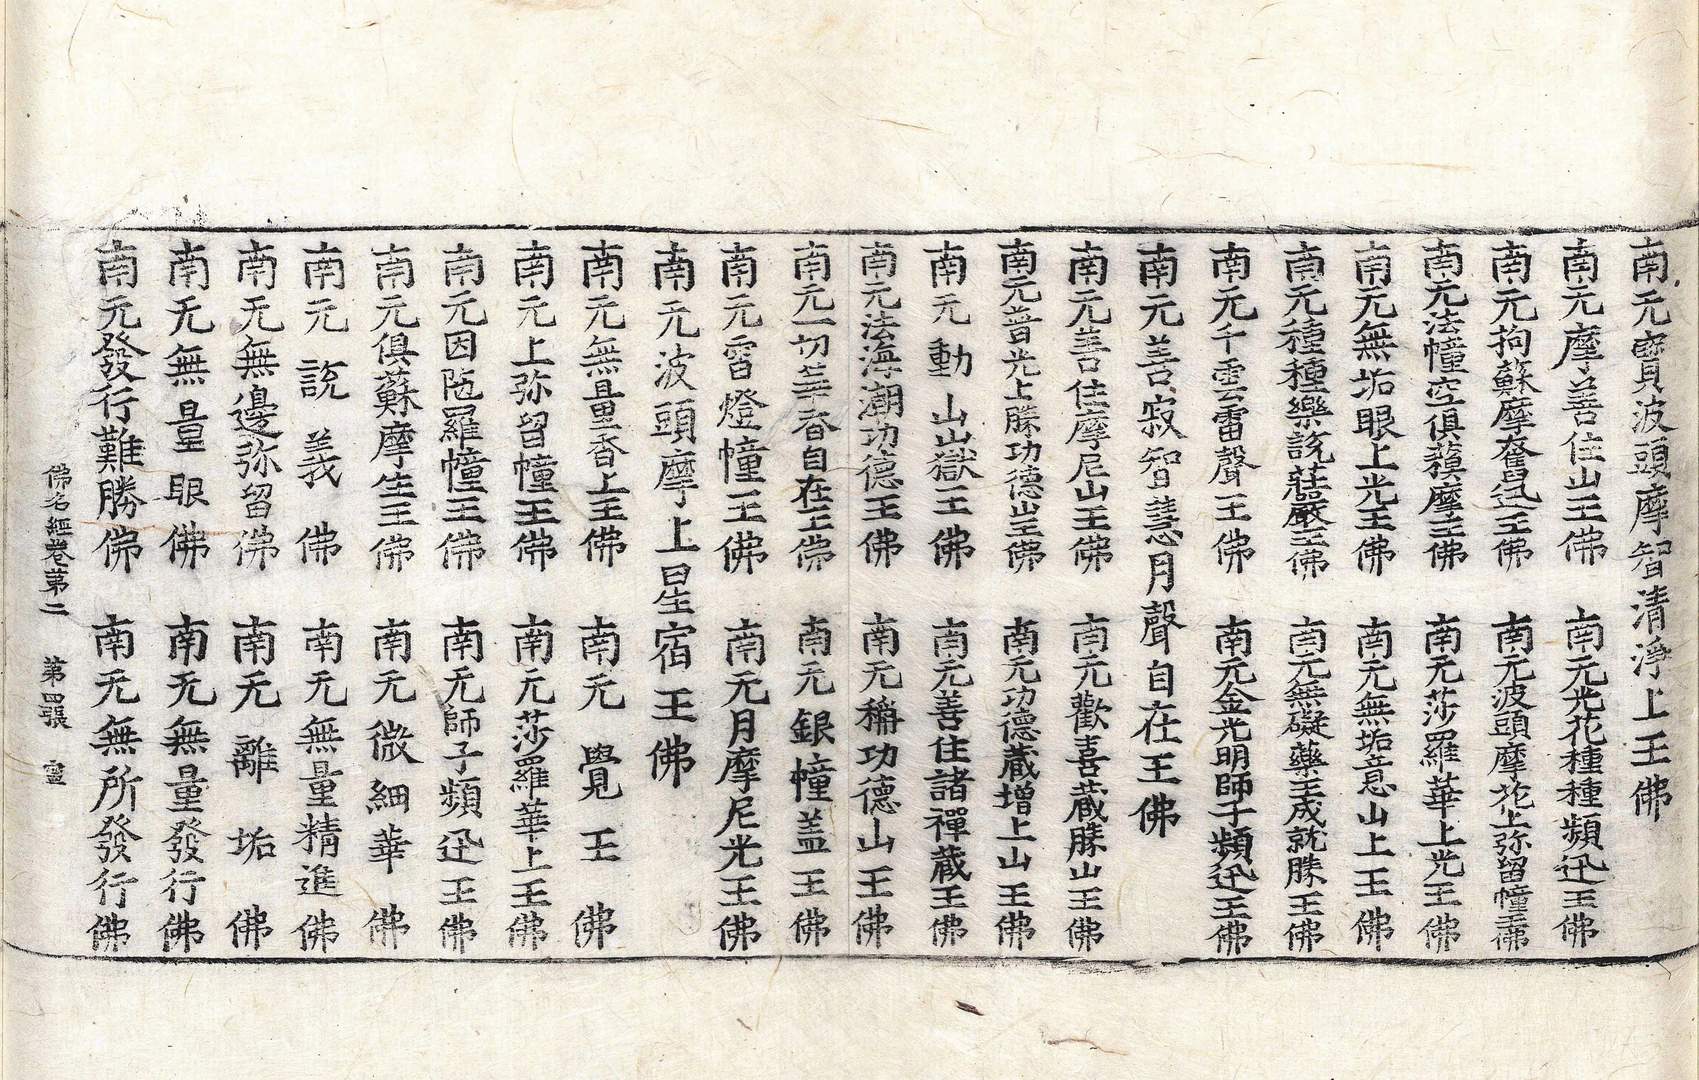 南无寶波頭摩智清淨上王佛
南无摩善住山王佛　南无光花種種頻迅王佛
南无拘蘇摩奮迅王佛　南无波頭摩花上弥留幢王佛
南无法幢空俱蘓摩王佛　南无莎羅華上光王佛
南无無垢眼上光王佛　南无無垢意山上王佛
南无種種樂說莊嚴王佛　南无無礙藥王成就勝王佛
南无千雲雷聲王佛　南无金光明師子頻迅王佛
南无善寂智慧月聲自在王佛
南无善住摩尼山王佛　南无歡喜蔵勝山王佛
南无普光上勝功德山王佛　南无功德蔵增上山王佛
南无動山嶽王佛　南无善住諸禪蔵王佛
南无法海潮功德王佛　南无稱功德山王佛
南无一切華香自在王佛　南无銀幢盖王佛
南无雷燈幢王佛　南无月摩尼光王佛
南无波頭摩上星宿王佛
南无無量香上王佛　南无覺王佛
南无上弥留幢王佛　南无莎羅華上王佛
南无因陁羅幢王佛　南无師子頻迅王佛
南无俱蘇摩生王佛　南无微細華佛
南无說義佛　南无無量精進佛
南无無邊弥留佛　南无離垢佛
南无無量眼佛　南无無量發行佛
南无發行難勝佛　南无無所發行佛
佛名經卷第二　第四張　靈